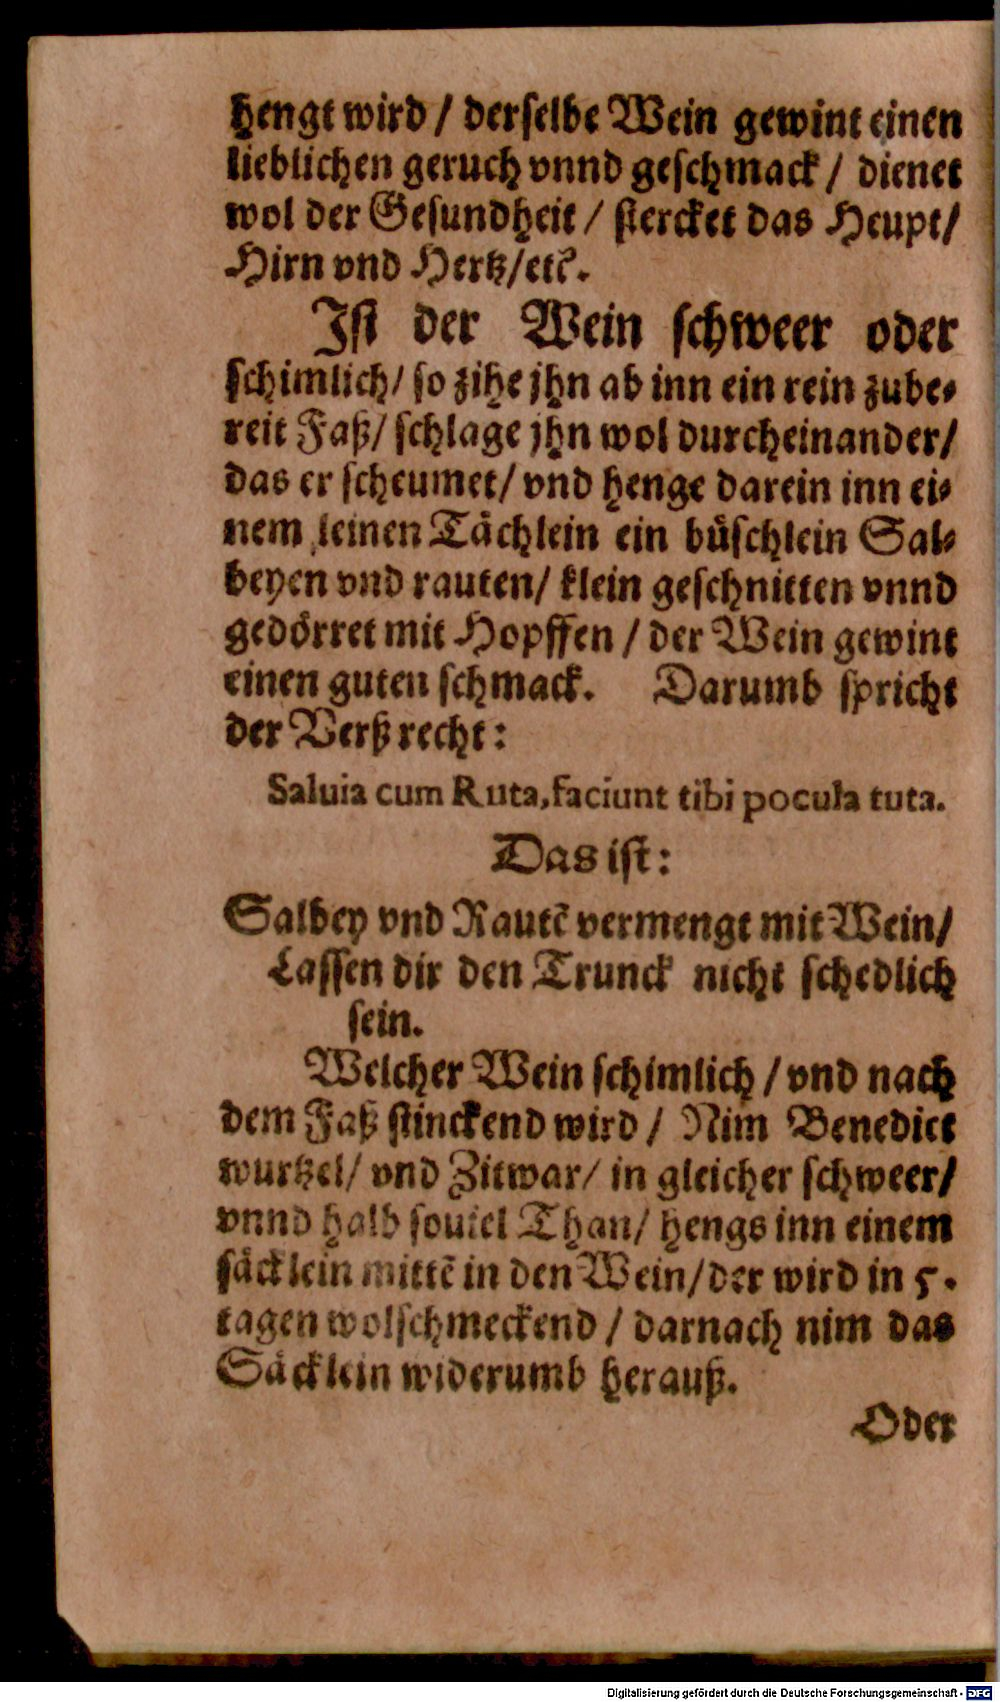 hengt wird / derſelbe Wein gewint einen
lieblichen geruch vnnd geſchmack / dienet
wol der Geſundheit / ſtercket das Heupt/
Hirn vnd Hertz/etc̃.
Jſt der Wein ſchweer oder
ſchimlich/ ſo zihe jhn ab inn ein rein zube⸗
reit Faß/ ſchlage jhn wol durcheinander/
das er ſcheumet/ vnd henge darein inn ei⸗
nem leinen Tächlein ein büſchlein Sal⸗
beyen vnd rauten/ klein geſchnitten vnnd
gedörret mit Hopffen / der Wein gewint
einen guten ſchmack. Darumb ſpricht
der Verß recht:
Saluia cum Ruta, faciunt tibi pocula tuta.
Das iſt:
Salbey vnd Rautẽ vermengt mit Wein/
Laſſen dir den Trunck nicht ſchedlich
ſein.
Welcher Wein ſchimlich / vnd nach
dem Faß ſtinckend wird / Nim Benedict
wurtzel/ vnd Zitwar/ in gleicher ſchweer/
vnnd halb ſouiel Than/ hengs inn einem
ſäcklein mittẽ in den Wein/der wird in 5.
tagen wolſchmeckend / darnach nim das
Säcklein widerumb herauß.
Oder
Digitalisierung gefördert durch die Deutsche Forschungsgemeinschaft - DFG